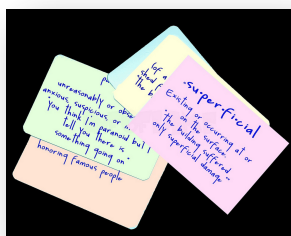 su·per·fi·cial
Existing or occurring at or
on the surface.
"the building suffered
only superficial damage"
(of a
shed
"the b
unreasonably or obse
anxious, suspicious, or
"you think I'm paranoid but I
tell you there is
something going on"
honoring famous people